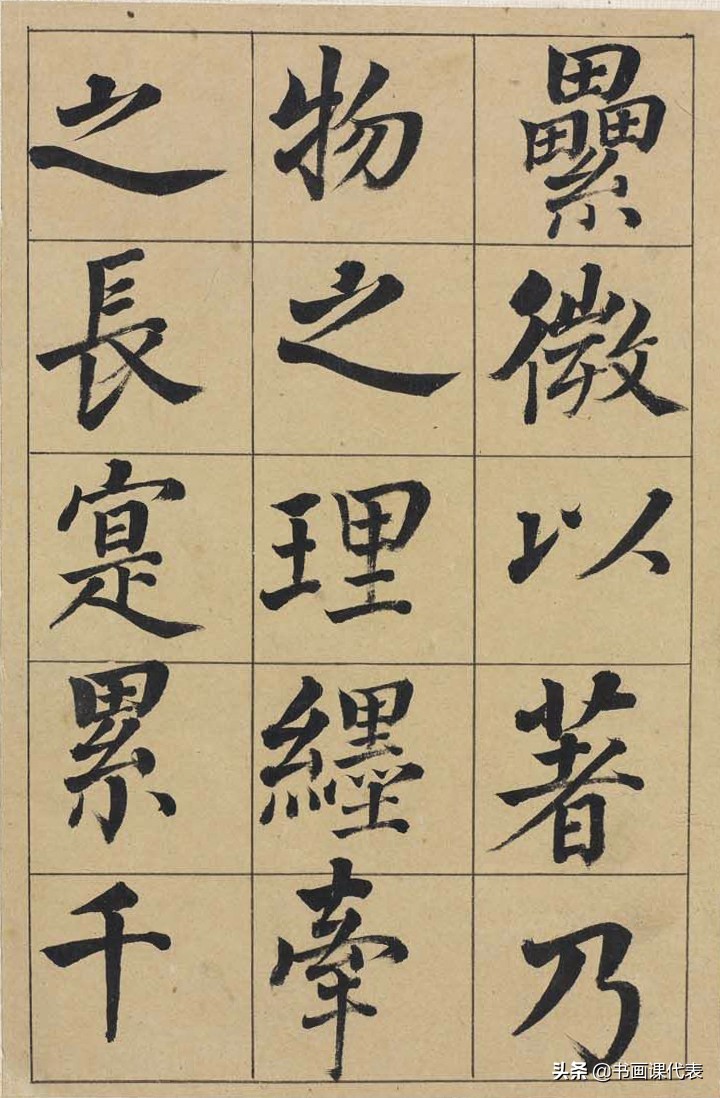 纍微以著乃
物之理纆牽
之長寔累千
头条 @书画课代表